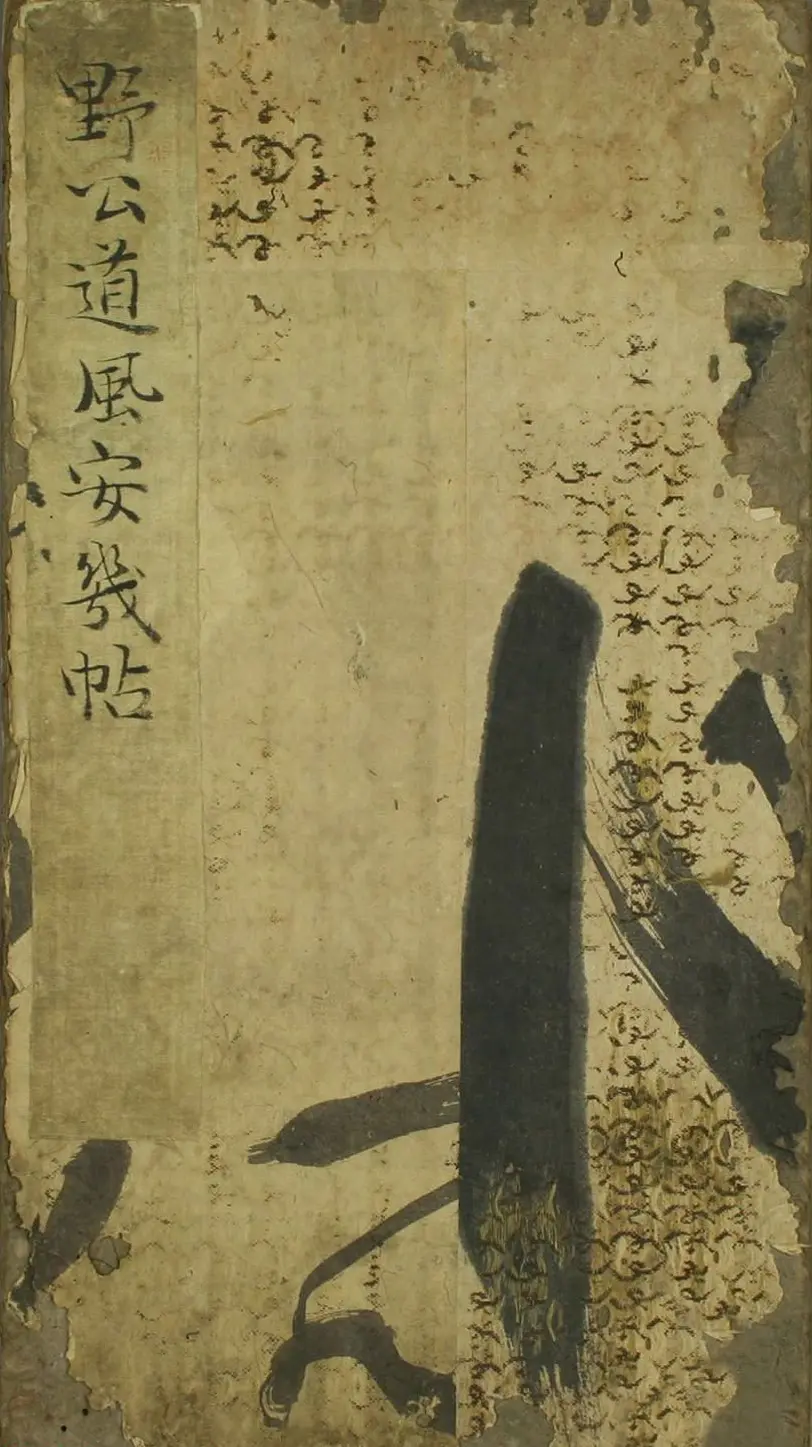 野公道風安幾帖